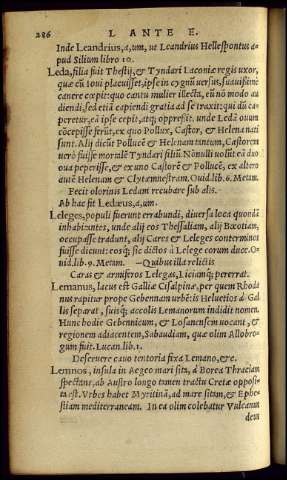 286 L ANTE E.
Inde Leandrius, a, um, ut Leandrius Hellespontus a-
pud Silium libro 10.
Leda, filia fuit Thestij, & Tyndari Laconiæ regis uxor,
quæ cū Ioui placuisset, ipse in cygnū uersus, suauissimè
canere cœpit: quo cantu mulier illecta, eū nō modo au
diendi, sed etiā capiendi gratia ad se traxit: qui dū ca-
peretur, eā ipse cepit, atq; oppreßit. unde Ledā ouum
cōcepisse ferūt, ex quo Pollux, Castor, & Helena nati
sunt. Alij dicūt Pollucē & Helenam tantum, Castorem
uerò fuisse mortalē Tyndari filiū. Nōnulli uolūt eā duo
oua peperisse, & ex uno Castorē & Pollucē, ex altero
autē Helenam & Clytæmnestram. Ouid. lib. 6. Metam.
Fecit olorinis Ledam recubare sub alis.
Ab hac fit Ledæus, a, um.
Leleges, populi fuerunt errabundi, diuersa loca quondā
inhabitantes, unde alij eos Thessaliam, alij Bœotian,
occupasse tradunt, alij Cares & Leleges conterminos
fuisse dicunt: eosq; sic dictos à Lelege eorum duce. O-
uid. lib. 9. Metam. — Quibus illa relictis
Caras & armiferos Lelegas, Liciamq; pererrat.
Lemanus, lacus est Galliæ Cisalpinæ, per quem Rhoda
nus rapitur prope Gebennam urbē: is Heluetios à Gal
lis separat, suisq; accolis Lemanorum indidit nomen.
Hunc hodie Gebennicum, & Losanensem uocant, &
regionem adiacentem, Sabaudiam, quæ olim Allobro-
gum fuit. Lucan. lib. 1.
Deseruere cauo tentoria fixa Lemano, &c.
Lemnos, insula in Aegeo mari sita, à Borea Thraciam
spectans, ab Austro longo tamen tractu Cretæ opposi-
ta est. Vrbes habet Myrinā, ad mare sitam, & Ephe-
stiam mediterraneam. In ea olim colebatur Vulcanus